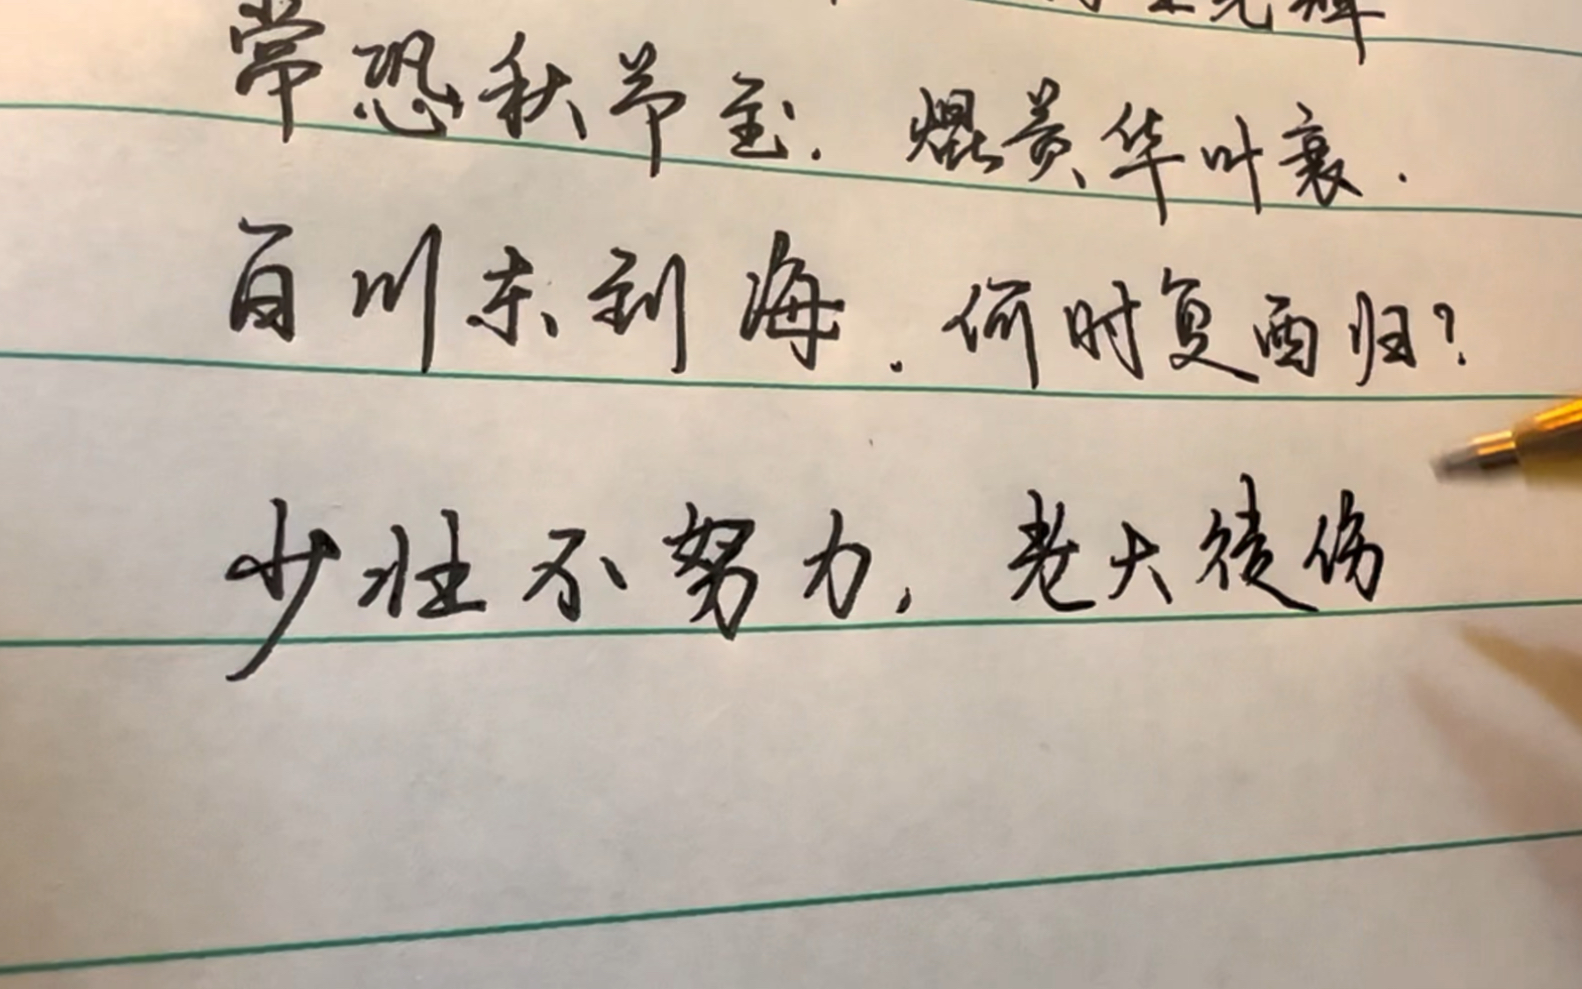 光辉
常恐秋节至.焜黄华叶衰.
百川东到海.何时复西归?
少壮不努力,老大徒伤